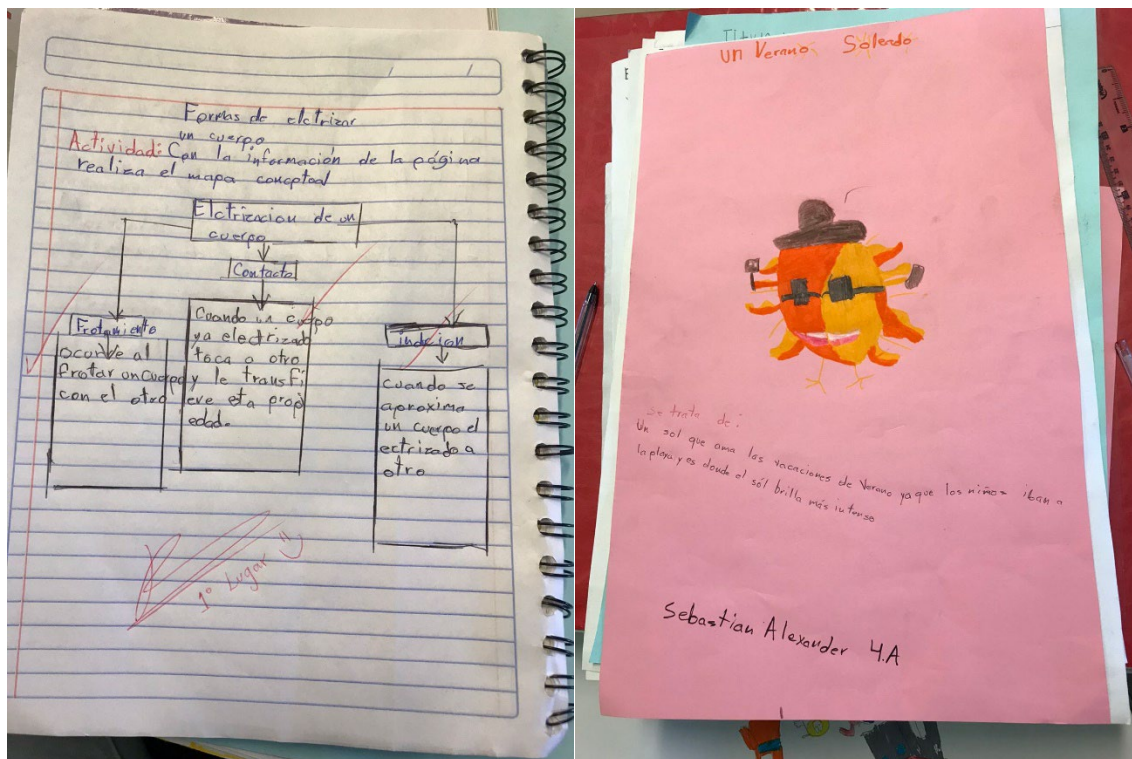 Formas de eletrizar
un cuerpo
Actividad: Con la información de la página
realiza el mapa conceptual
Elctrizacion de un
cuerpo
Contacto
Frotamiento
ocurre al
frotar un cuerpo
con el otro
Cuando un cuerpo
ya electrizado
toca a otro
y le transfi
ere esta propi
edad.
indcion
Cuando se
aproxima
un cuerpo el
ectrizado a
otro
1° Lugar
un Verano Soleado
Se trata de:
Un sol que ama las vacaciones de Verano ya que los niños iban a
la playa y es donde el sól brilla más intenso
Sebastian Alexander 4.A